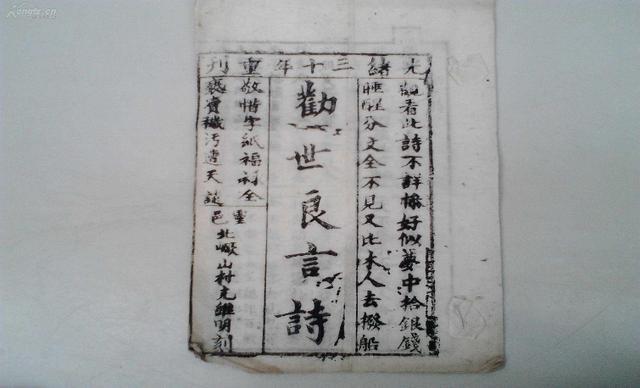 光緒三十年重刊
觀看此詩不詳條好似夢中拾銀錢
睡醒分文全不見又比木人去撥船
勸世良言詩
敬惜字紙福祿全
褻賣穢污遭天譴
靈邑
北 山村 維明刻